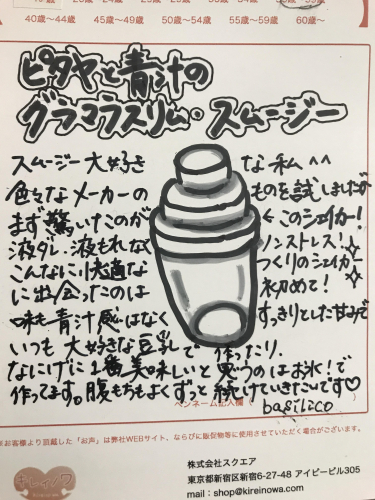 40歳～44歳 45歳～49歳 50歳～54歳 55歳～59歳 60歳～
ピタヤと青汁の
グラマラスリム・スムージー
スムージー大好きな私^^
色々なメーカーのものを試しましたが
まず驚いたのが←このシェイカー!
液ダレ、液もれなくノンストレス!
こんなに快適なつくりのシェイカー
に出会ったのは初めて!
味も青汁感はなくすっきりとした甘みで
いつも大好きな豆乳で作ったり、
なにげに1番美味しいと思うのはお氷!で
作ってます。腹もちもよくずっと続けていきたいです♡
ペンネーム記入欄(
basilico
お客様より頂戴した「お声」は弊社WEBサイト、ならびに販促物等に使用させていただく場合がございます。
キレイノワ
株式会社スクエア
東京都新宿区新宿6-27-48 アイビービル305
mail：shop@kireinowa.com